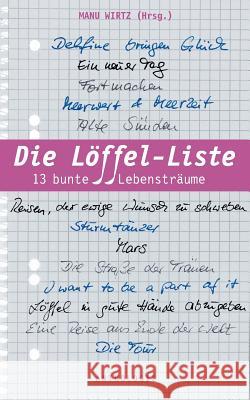 MANU WIRTZ (Hrsg.)
Delfine bringen Glück
Ein neuer Tag
Fortmachen
Meerwert & Meerzeit
Alte Sünden
Die Löffel-Liste
13 bunte Lebensträume
Reisen, der ewige Wunsch zu schweben
Sturmtänzer
Mars
Die Straße der Tränen
I want to be a part of it
Löffel in gute Hände abzugeben
Eine Reise ans Ende der Welt
Die Tour